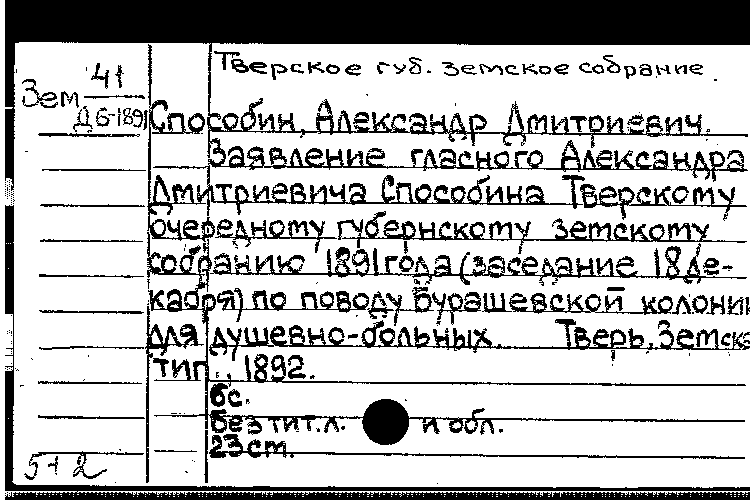 Тверское губ. земское собрание.
Зем 41
Д 6-1891
Способин, Александр Дмитриевич.
Заявление гласного Александра
Дмитриевича Способина Тверскому
очередному губернскому земскому
собранию 1891 года (заседание 18 де-
кабря) по поводу Бурашевской колонии
для душевно-больных. Тверь, Земска
тип., 1892.
6с.
Без тит. л. и обл.
23 cm.
5+2